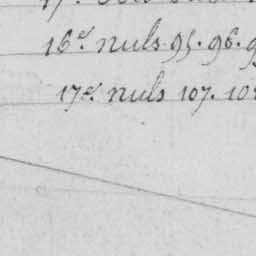 16.e nuls 95. 96. 9
17.e nuls 107. 10